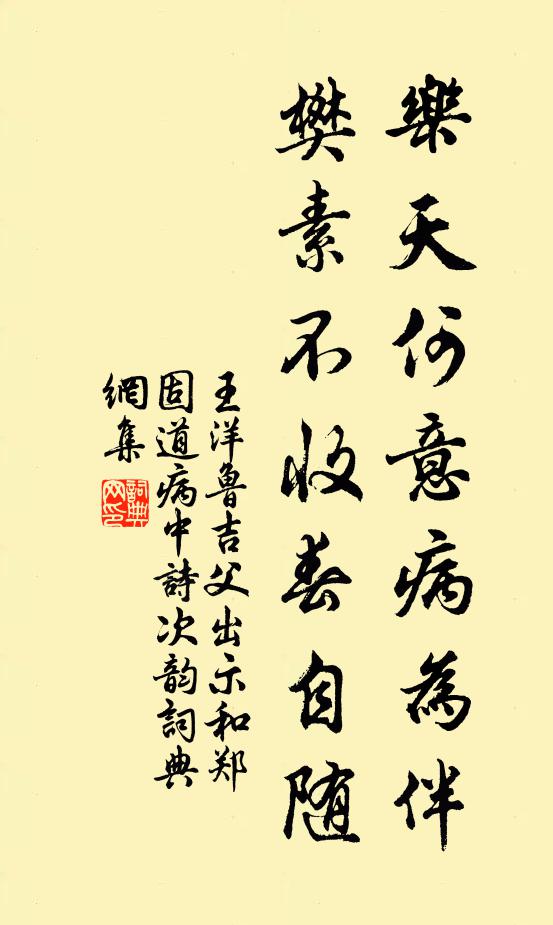 樂天何意病為伴
樊素不收春自随
王洋魯吉父出示和郑
固道病中詩次韵詞典
網集
詞典
网印